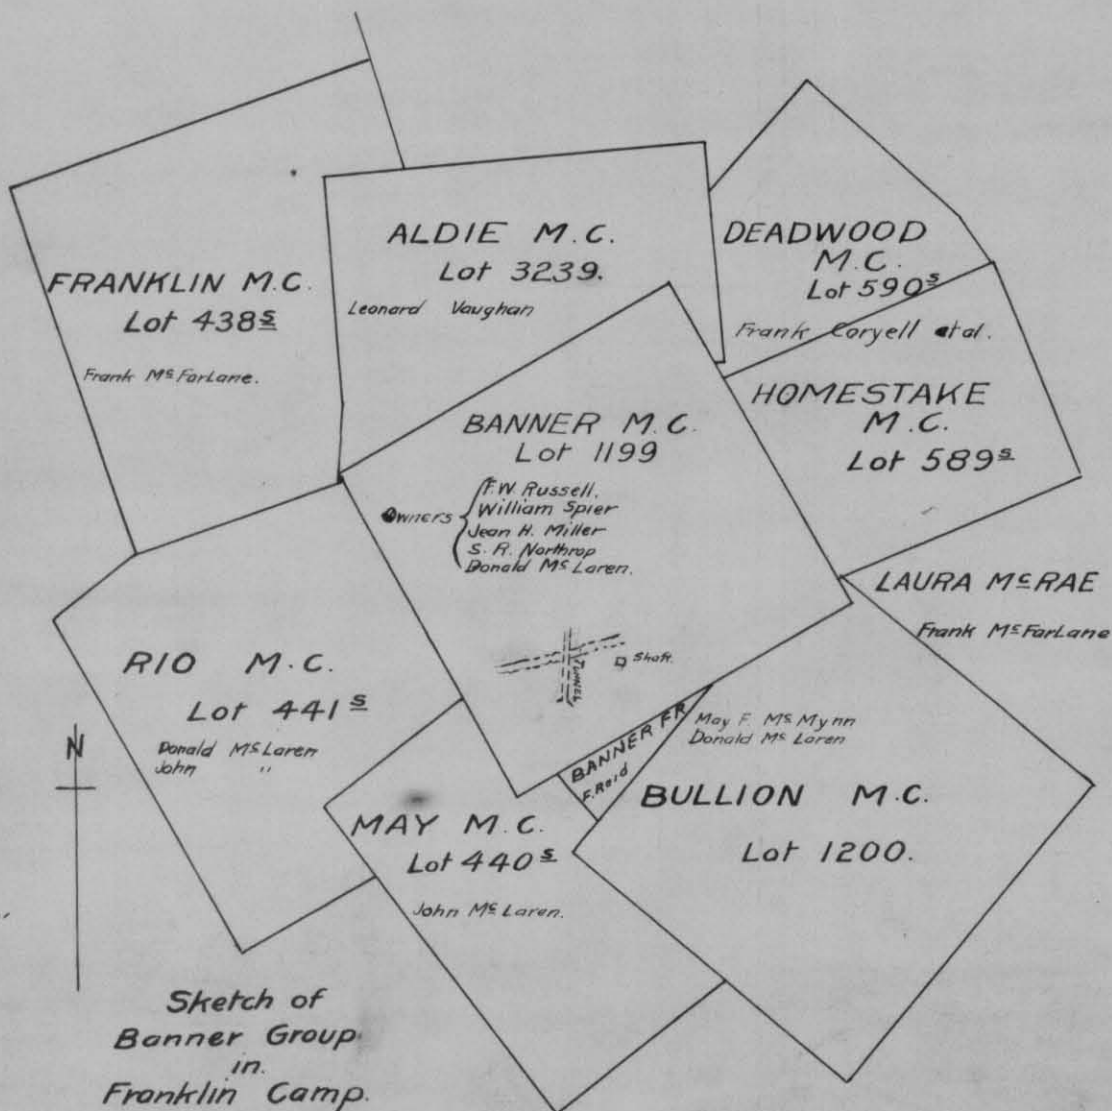 FRANKLIN M.C.
Lot 438 s
Frank McFarLane.
ALDIE M.C.
Lot 3239.
Leonard Vaughan
DEADWOOD
M.C.
Lot 590 s
Frank Coryell et al.
HOMESTAKE
M.C.
Lot 589 s
BANNER M.C.
Lot 1199
Owners
F.W. Russell.
William Spier
Jean H. Miller
S. R. Northrop
Donald McLaren.
TUNNEL
Shaft.
LAURA McRAE
Frank McFarLane
RIO M.C.
Lot 441 s
Donald McLaren
John "
N
BANNER FR
F. Reid
May F. McMynn
Donald McLaren
BULLION M.C.
Lot 1200.
MAY M.C.
Lot 440 s
John McLaren.
Sketch of
Banner Group
in.
Franklin Camp.